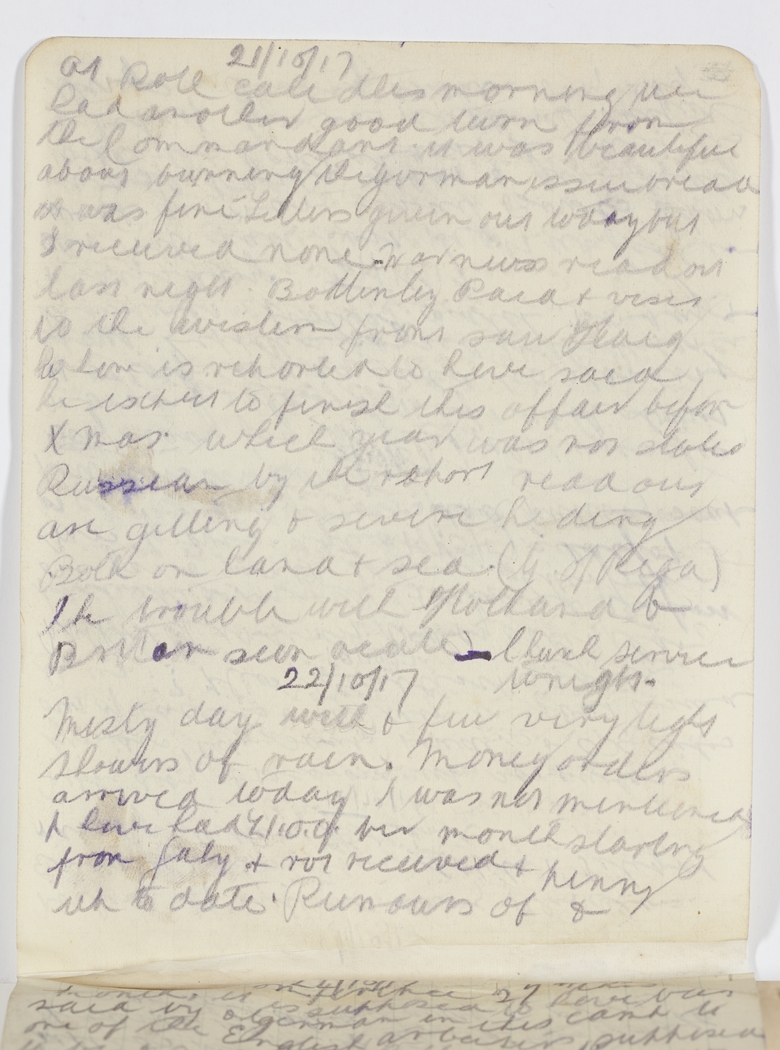 21/10/17
At Roll call this morning we
had another good turn from
the Commandant. it was beautiful
about burning the german issue bread
it was fine. Letters given out today but
I received none. War news read out
last night. Bottomley Paid a visit
to the western front saw Haig
to him is reported to have said
he expect to finish this affair before
Xmas. which year was not stated
Russian by the report read out
are getting a severe hiding
Both on land & sea. (G. of Riga)
The trouble with Holland &
Britain seem acute) Church service
tonight.
22/10/17
Misty day with a few very light
showers of rain. Money orders
arrived today I was not mentioned
I have had per month starting
from July & not received a penny
up to date. Rumours of a
27
said by a is supposed to have been
one of the german in this camp to
English supposed